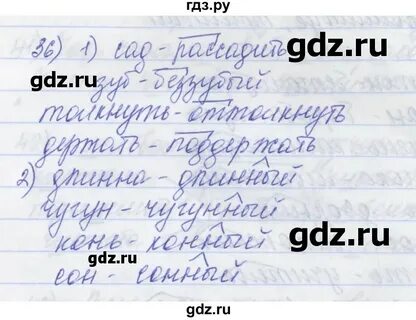 гдз.ру
36) 1) сад - рассадить
зуб - беззубый
толкнуть - оттолкнуть
держать - поддержать
2) длинна - длинный
чугун - чугунный
конь - конный
сон - сонный
gdz.ru
gdz.ru
gdz.ru
gdz.ru
gdz.ru
gdz.ru